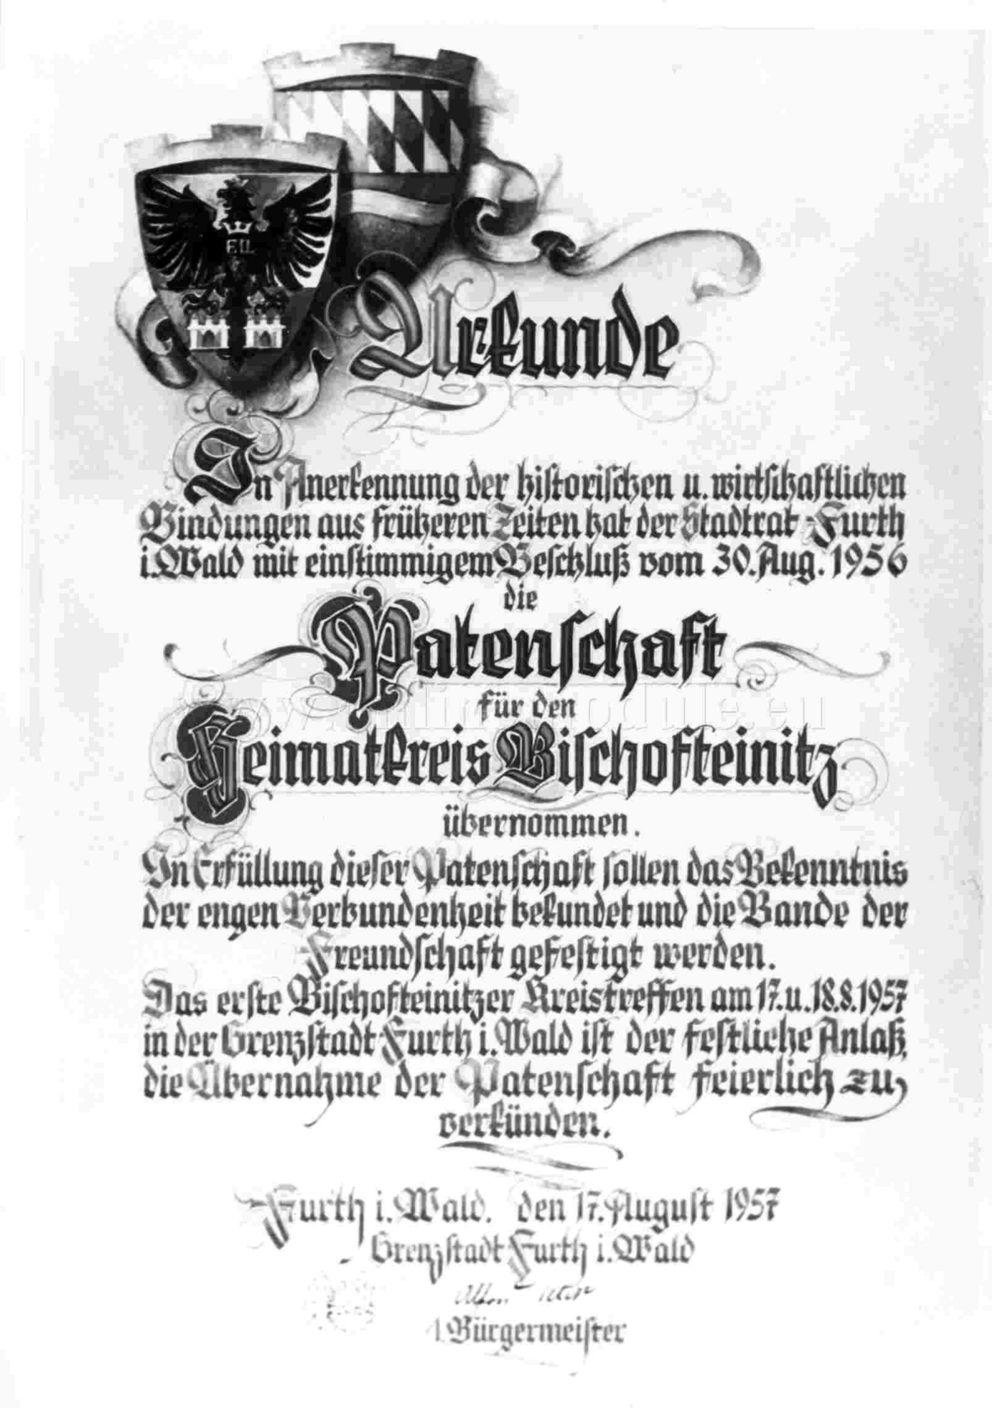 F.II.
Urkunde
In Anerkennung der historischen u. wirtschaftlichen
Bindungen aus früheren Zeiten hat der Stadtrat Furth
i. Wald mit einstimmigem Beschluß vom 30. Aug. 1956
die
Patenschaft
für den
Heimatkreis Bischofteinitz
übernommen.
In Erfüllung dieser Patenschaft sollen das Bekenntnis
der engen Verbundenheit bekundet und die Bande der
Freundschaft gefestigt werden.
Das erste Bischofteinitzer Kreistreffen am 17. u. 18.8.1957
in der Grenzstadt Furth i. Wald ist der festliche Anlaß,
die Übernahme der Patenschaft feierlich zu
verkünden.
Furth i. Wald. den 17. August 1957
Grenzstadt Furth i. Wald
1. Bürgermeister